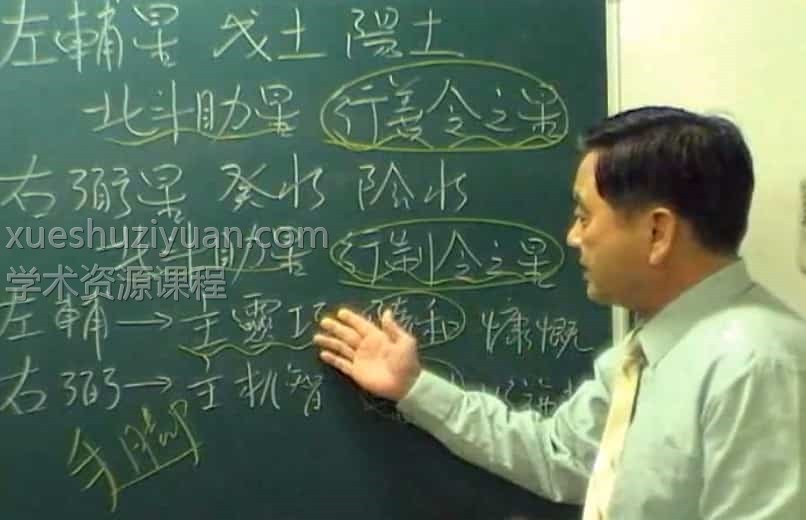 左輔星 戊土 陽土
北斗助星 行善令之星
右弼星 癸水 陰水
xueshuziyuan.com
北斗助星 行制令之星
学术资源课程
左輔→主靈巧 隨和 慷慨
右弼→主机智
手腳